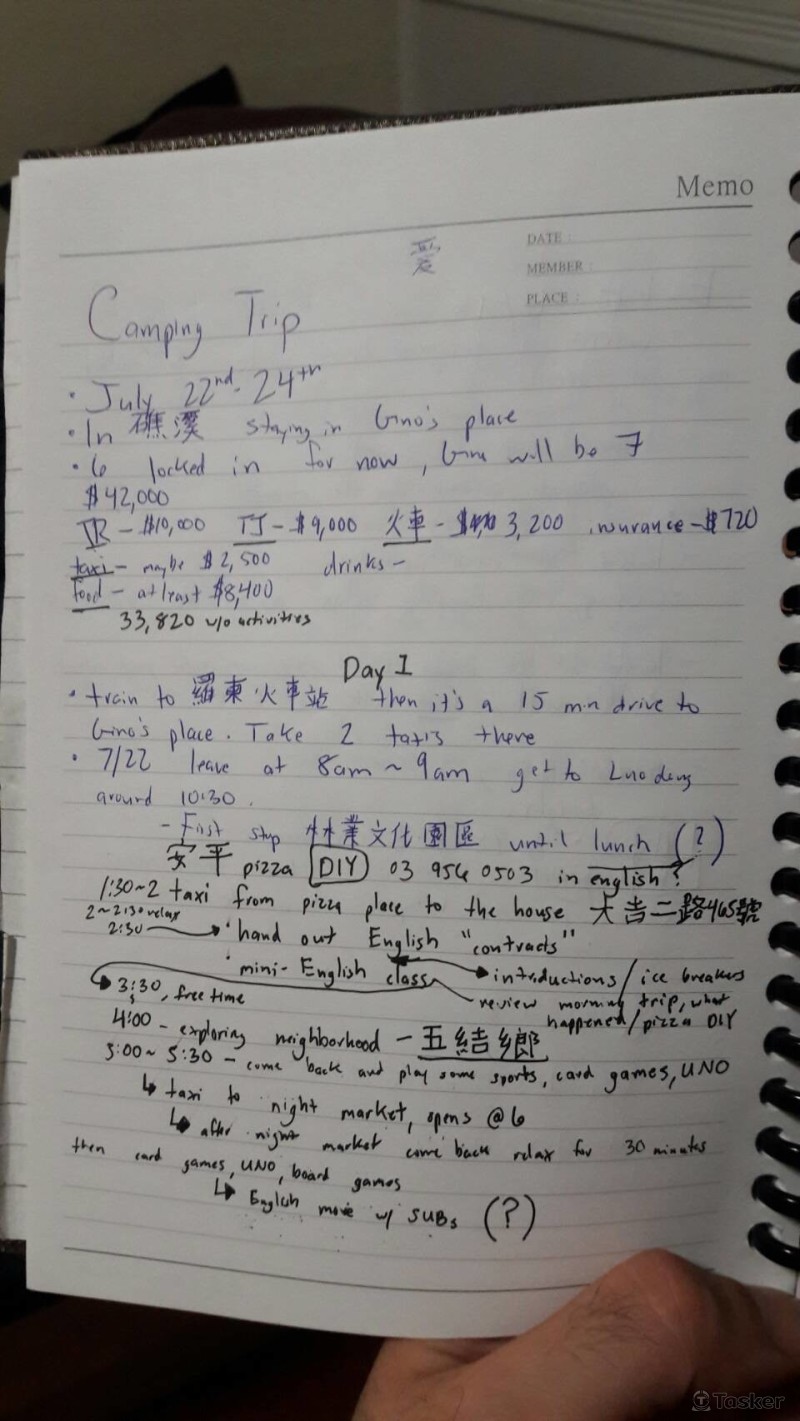 Memo
愛
DATE :
MEMBER :
PLACE :
Camping Trip
• July 22nd - 24th
• In 礁溪 staying in Gino's place
• 6 locked in for now, Gina will be 7
$42,000
JR - $10,000 TJ - $9,000 火車 - 3,200 insurance - $720
taxi - maybe $2,500 drinks -
food - at least $8,400
33,820 w/o activities
Day 1
• train to 羅東火車站 then it's a 15 min drive to
Gino's place. Take 2 taxis there
• 7/22 leave at 8am ~ 9am get to Luodong
around 10:30.
- First stop 林業文化園區 until lunch (?)
安平 pizza DIY 03 956 0503 in english?
1:30~2 taxi from pizza place to the house 大吉二路465號
2~2:30 relax
2:30 → • hand out English "contracts"
• mini-English class → introductions / ice breakers
review morning trip, what
happened / pizza DIY
3:30, free time
4:00 - exploring neighborhood - 五結鄉
5:00~ 5:30 - come back and play some sports, card games, UNO
↳ taxi to night market, opens @ 6
↳ after night market come back relax for 30 minutes
then card games, UNO, board games
↳ English movie w/ SUBs (?)
Tasker